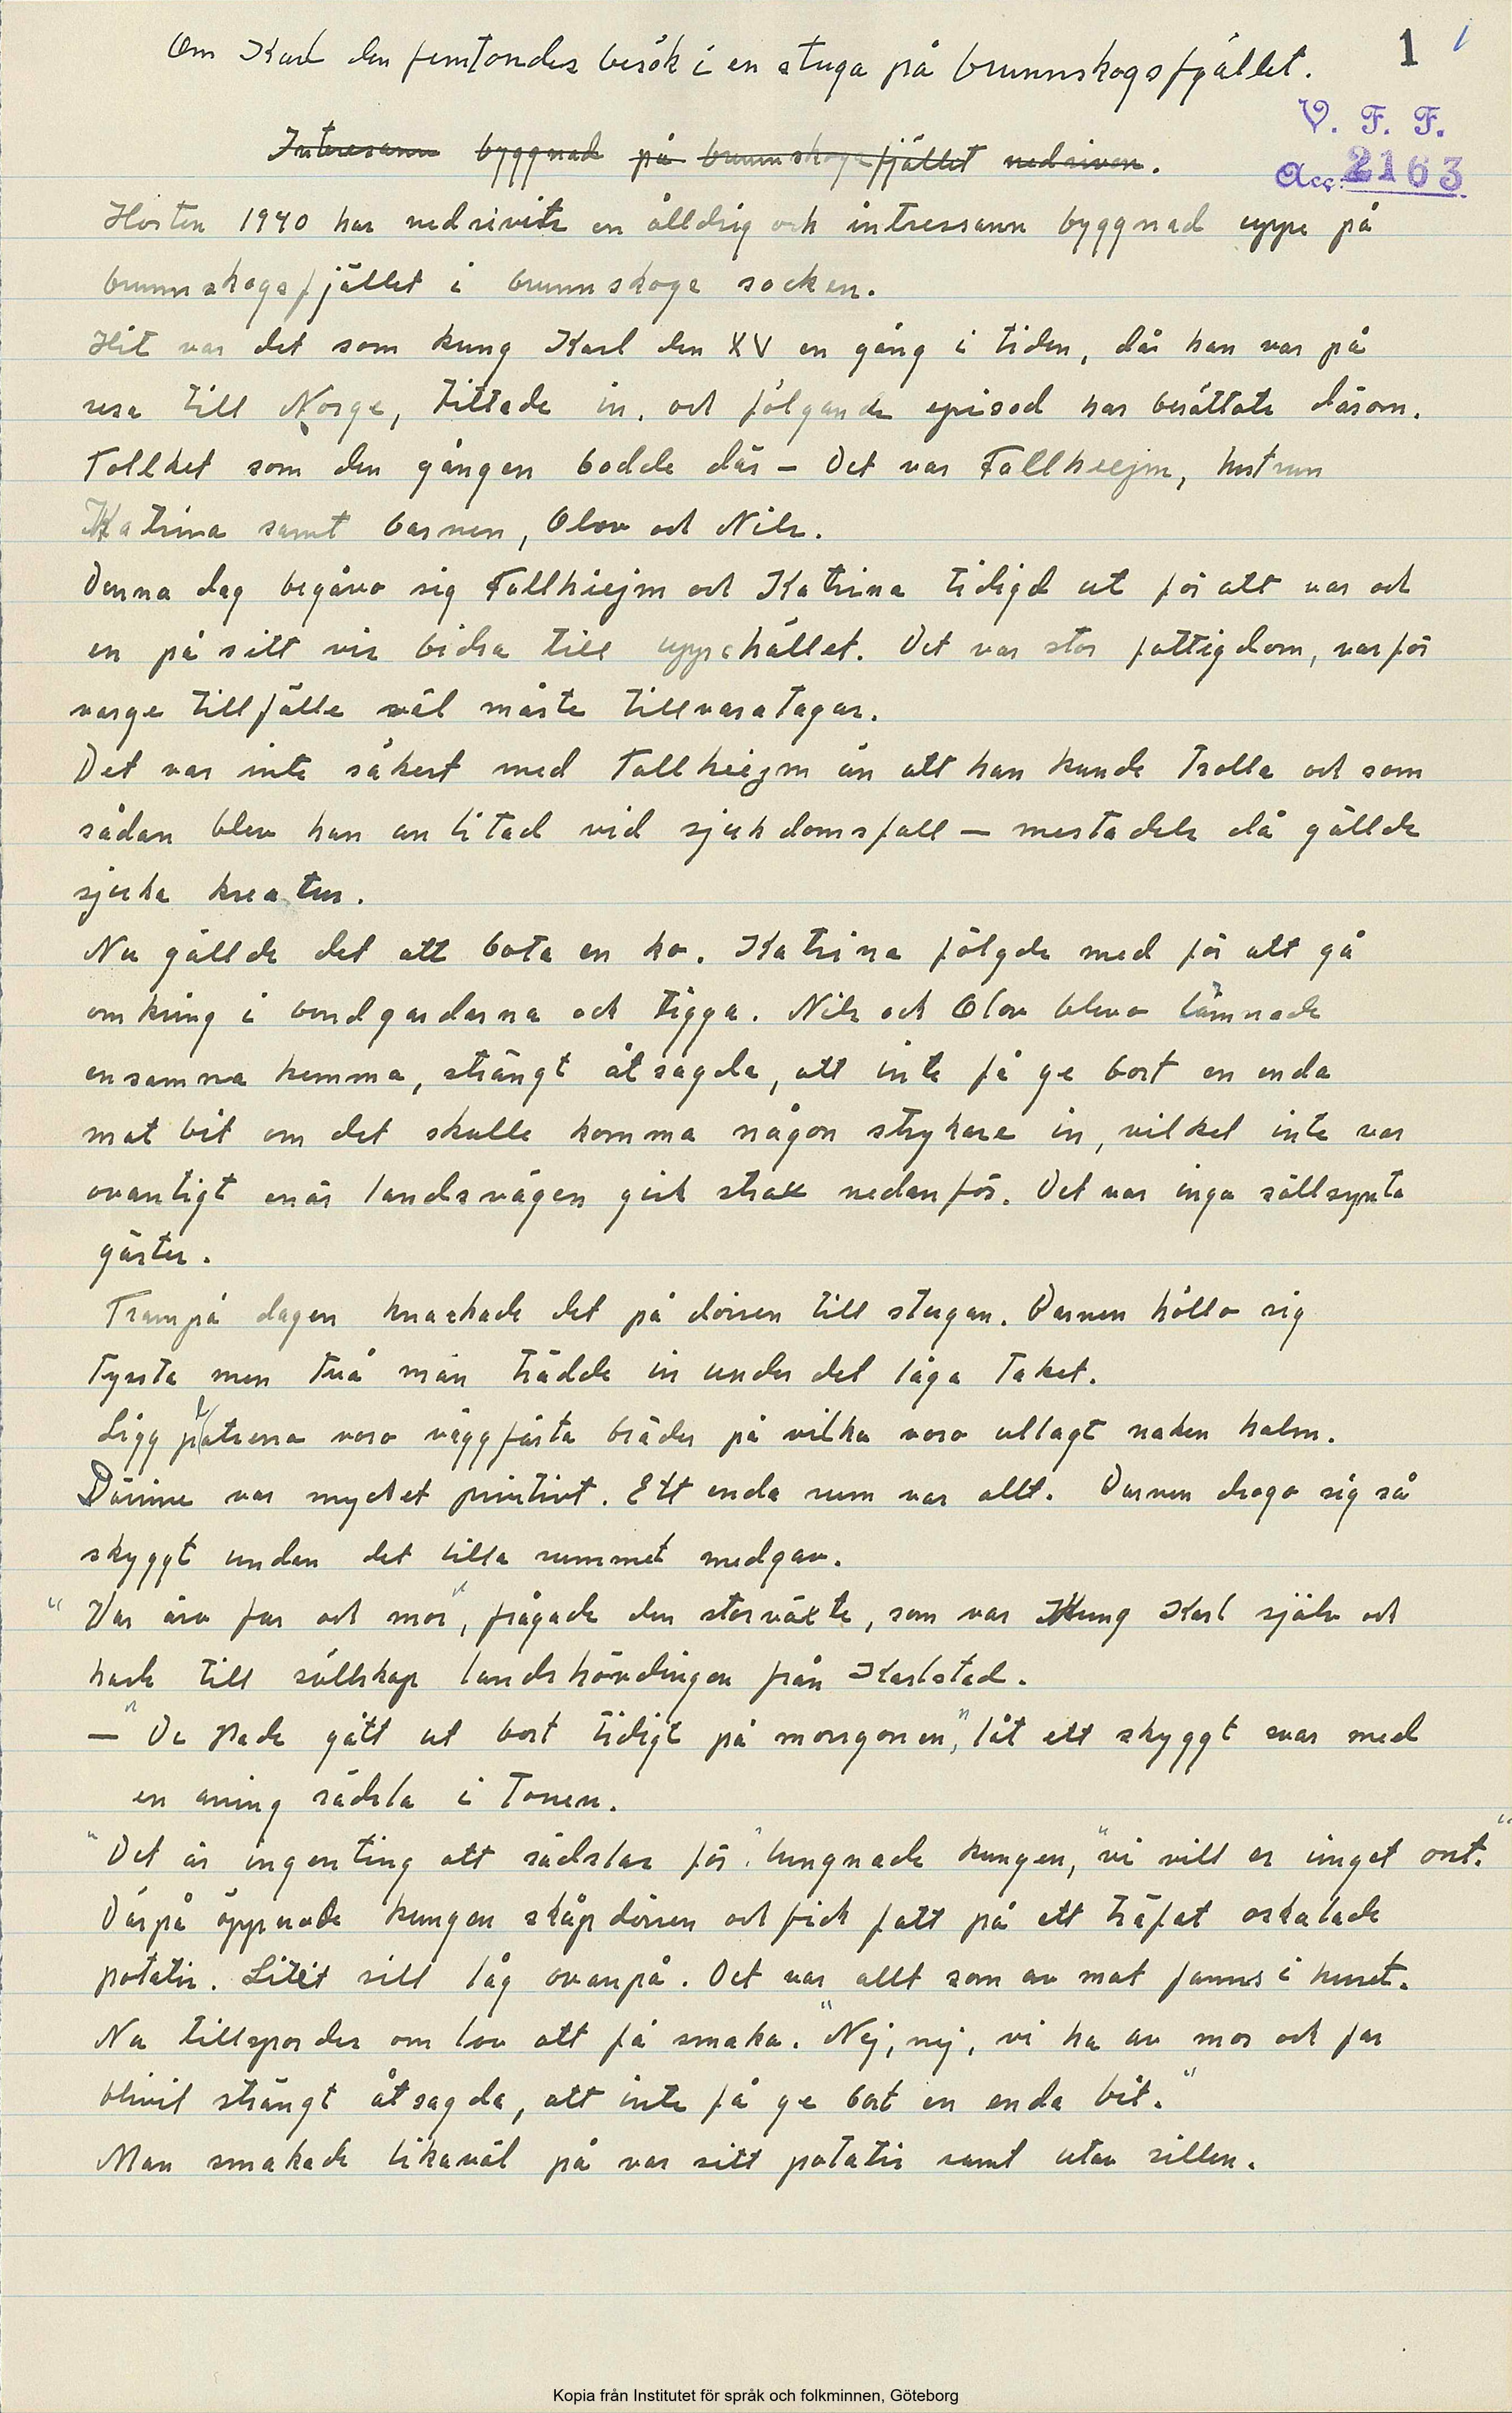 Om Karl den femtondes besök i en stuga på brunnskogsfjället.
1 1
V. F. F.
Acc. 2163
Interesann byggnad på brunnskogsfjället nedriven.
Hösten 1940 har nedrivits en ålldrig och intressann byggnad uppe på
brunnskogsfjället i brunnskogs socken.
Hit var det som kung Karl den XV en gång i tiden, då han var på
resa till Norge, tittade in, och följande episod har berättats därom.
Follket som den gången bodde där — Det var Fallhiejm, hustrun
Katrina samt barnen, Olov och Nils.
Denna dag begåvo sig Fallhiejm och Katrina tidigd ut för att var och
en på sitt vis bidra till uppehället. Det var stor fattigdom, varför
varge tillfälle väl måste tillvaratagas.
Det var inte säkert med Fallhiejm än att han kunde trolla och som
sådan blev han anlitad vid sjukdomsfall — mestadels då gällde
sjuka kreatur.
Nu gällde det att bota en ko. Katrina följde med för att gå
omkring i bondgardarna och tigga. Nils och Olov blevo lämnade
ensamna hemma, strängt åtsagda, att inte få ge bort en enda
mat bit om det skulle komma någon strykare in, vilket inte var
ovanligt enär landsvägen gick strax nedanför. Det var inga sällsynta
gäster.
Frampå dagen knackade det på dörren till stugan. Barnen höllo sig
tysta men två män trädde in under det låga taket.
Ligg platserna voro väggfästa bräder på vilka voro utlagt naken halm.
Därinne var mycket primtivt. Ett enda rum var allt. Barnen drogo sig så
skyggt undan det lilla rummet medgav.
"Var äro far och mor", frågade den storväxte, som var Kung Karl själv och
hade till sällskap landshövdingen från Karlstad.
— "De hade gått ut bort tidigt på morgonen," lät ett skyggt svar med
en aning rädsla i tonen.
"Det är ingenting att rädslas för" lungnade kungen, "vi vill er inget ont."
Därpå öppnade kungen skåpdörren och fick fatt på ett träfat oskalade
potatis. Litet sill låg ovanpå. Det var allt som av mat fanns i huset.
Nu tillspordes om lov att få smaka. "Nej, nej, vi ha av mor och far
blivit strängt åtsagda, att inte få ge bort en enda bit."
Man smakade likaväl på var sitt potatis samt utav sillen.
Kopia från Institutet för språk och folkminnen, Göteborg